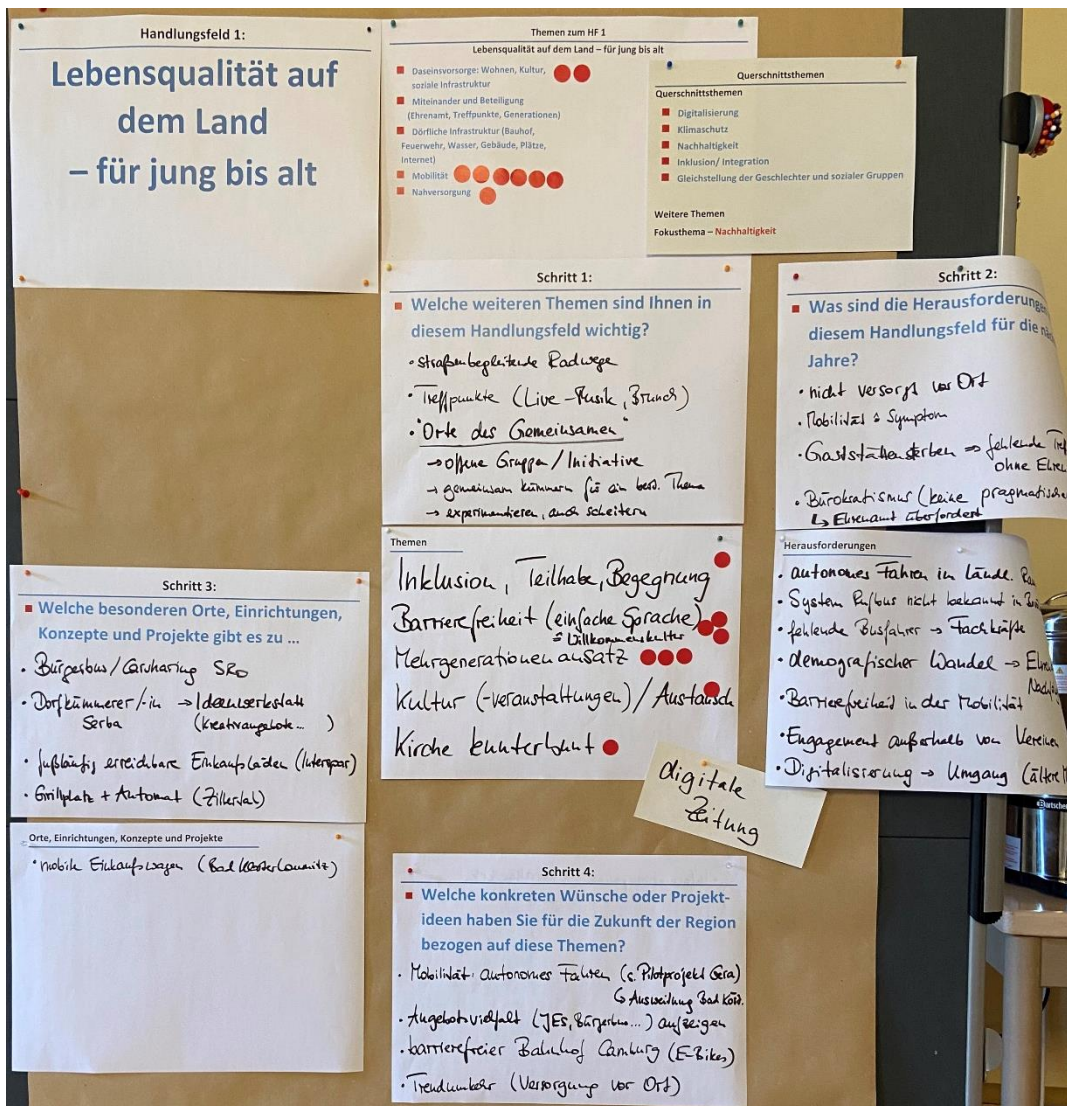 Handlungsfeld 1:
Lebensqualität auf
dem Land
– für jung bis alt
Themen zum HF 1
Lebensqualität auf dem Land – für jung bis alt
Daseinsvorsorge: Wohnen, Kultur,
soziale Infrastruktur
Miteinander und Beteiligung
(Ehrenamt, Treffpunkte, Generationen)
Dörfliche Infrastruktur (Bauhof,
Feuerwehr, Wasser, Gebäude, Plätze,
Internet)
Mobilität
Nahversorgung
Querschnittsthemen
Querschnittsthemen
Digitalisierung
Klimaschutz
Nachhaltigkeit
Inklusion/ Integration
Gleichstellung der Geschlechter und sozialer Gruppen
Weitere Themen
Fokusthema – Nachhaltigkeit
Schritt 1:
Welche weiteren Themen sind Ihnen in
diesem Handlungsfeld wichtig?
• straßenbegleitende Radwege
• Treffpunkte (Live-Musik, Brunch)
• "Orte des Gemeinsamen"
→ offene Gruppen/Initiative
→ gemeinsam kümmern für ein bes. Thema
→ experimentieren, auch scheitern
Themen
Inklusion, Teilhabe, Begegnung
Barrierefreiheit (einfache Sprache)
≙ Willkommenskultur
Mehrgenerationenansatz
Kultur (-veranstaltungen) / Austausch
Kirche kunterbunt
digitale
Zeitung
Schritt 2:
Was sind die Herausforderungen
diesem Handlungsfeld für die
Jahre?
• nicht versorgt vor Ort
• Mobilität ≙ Symptom
• Gaststättensterben ⇒ fehlende
ohne
• Bürokratismus (keine pragmatische
↳ Ehrenamt überfordert
Herausforderungen
• autonomes Fahren im ländl.
• System Rufbus nicht bekannt in
• fehlende Busfahrer → Fachkräfte
• demografischer Wandel →
• Barrierefreiheit in der Mobilität
• Engagement außerhalb von Vereinen
• Digitalisierung → Umgang (ältere
Schritt 3:
Welche besonderen Orte, Einrichtungen,
Konzepte und Projekte gibt es zu ...
• Bürgerbus/Carsharing SRO
• Dorfkümmerer/-in → Ideenwerkstatt
Serba (Kreativangebote... )
• fußläufig erreichbare Einkaufsläden (Interspar)
• Grillplatz + Automat (Zillertal)
Orte, Einrichtungen, Konzepte und Projekte
• mobile Einkaufswagen (Bad Klosterlausnitz)
Schritt 4:
Welche konkreten Wünsche oder Projekt-
ideen haben Sie für die Zukunft der Region
bezogen auf diese Themen?
• Mobilität: autonomes Fahren (s. Pilotprojekt Gera)
↳ Ausweitung Bad Köst.
• Angebotsvielfalt (JEs, Bürgerbus...) aufzeigen
• barrierefreier Bahnhof Camburg (E-Bikes)
• Trendumkehr (Versorgung vor Ort)